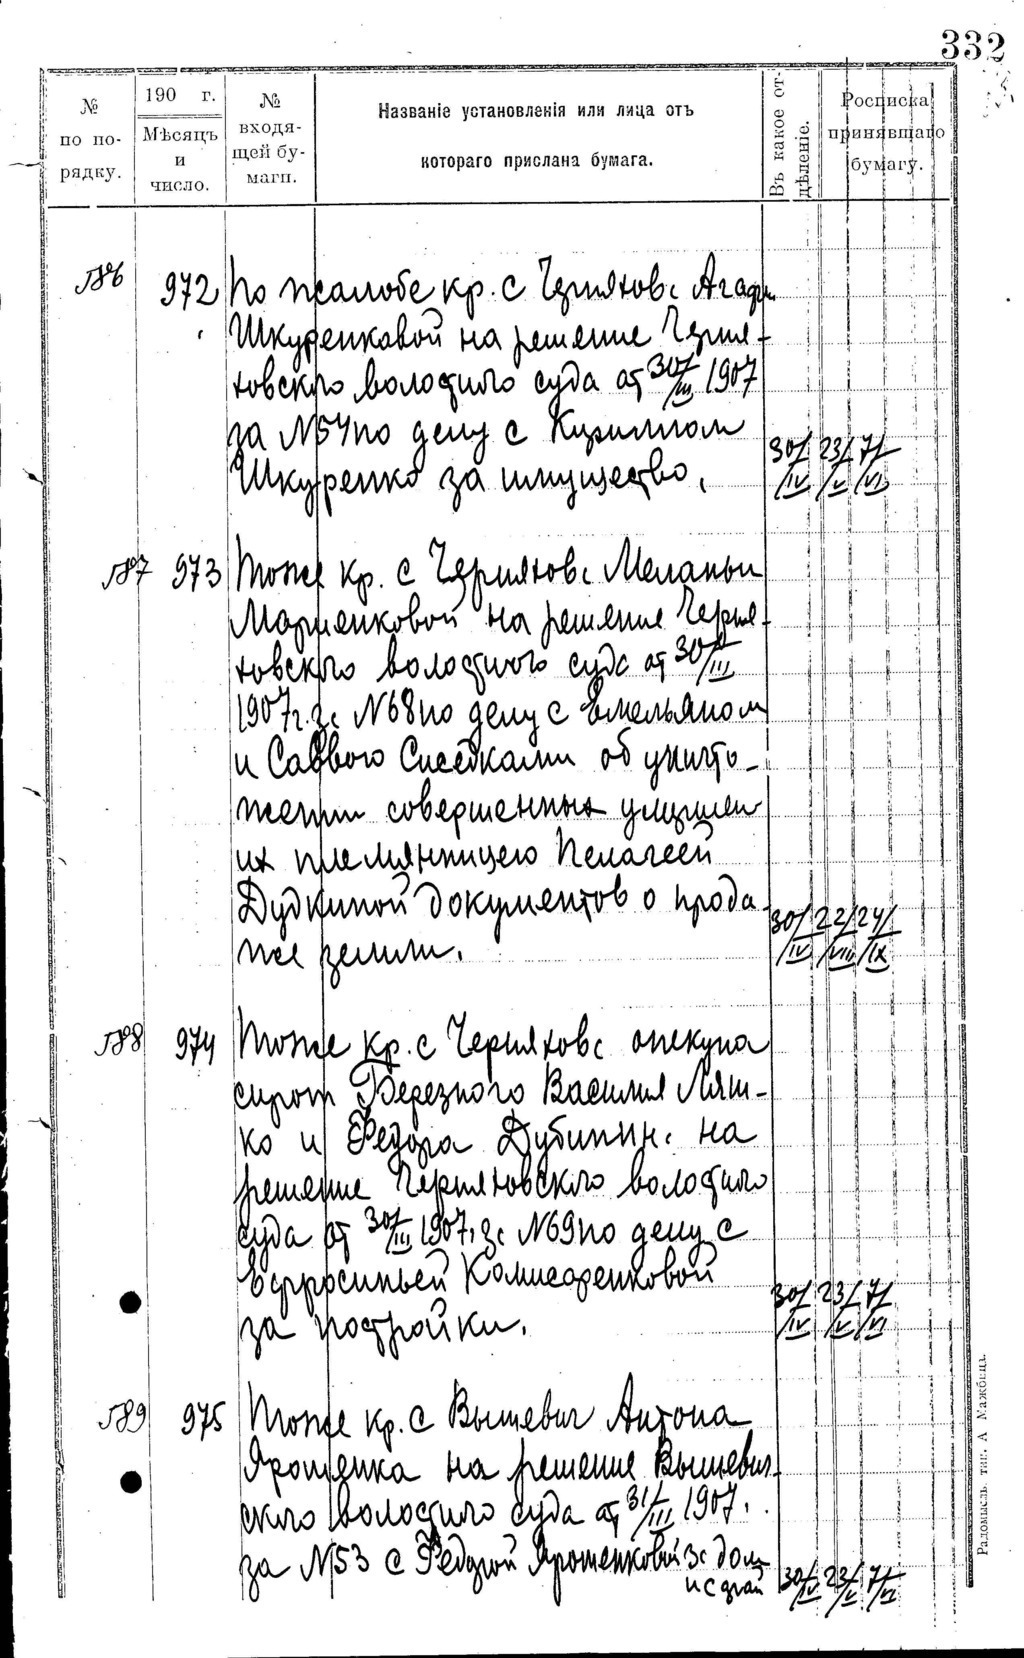 332
№
по по-
рядку.
190 г.
Мѣсяцъ
и
число.
№
входя-
щей бу-
маги.
Названіе установленія или лица отъ
котораго прислана бумага.
Въ какое от-
дѣленіе.
Росписка
принявшаго
бумагу.
186 972 По жалобе кр. с Черняхова Агафьи
Шкуренковой на решение Черня-
ховского волостного суда от 30/III 1907
за №54 по делу с Кириллом
Шкуренко за имущество. 30/IV 23/V 7/VI
187 973 Тоже кр. с Черняхова Меланьи
на решение Черня-
ховского волостного суда от 30/III
1907г. за №68 по делу с Емельяном
и Саввою об уничто-
жении совершенных
их племянницею Пелагеей
Дудкиной документов о прода-
же земли. 30/IV 22/VIII 24/IX
188 974 Тоже кр. с Черняхова опекуна
сирот Березного Василия Ляш-
ко и Федора на
решение Черняховского волостного
суда от 30/III 1907г. за №69 по делу с
Ефросиньей Комисаренковой
за постройки. 30/IV 23/V 7/VI
189 975 Тоже кр. с Вышевич Антона
Ярошенка на решение Вышевич-
ского волостного суда от 31/III 1907г.
за №53 с Федорой Ярошенковой за дом
и сарай 30/IV 23/V 7/VI
Радомысль. тип. А Мажбица.